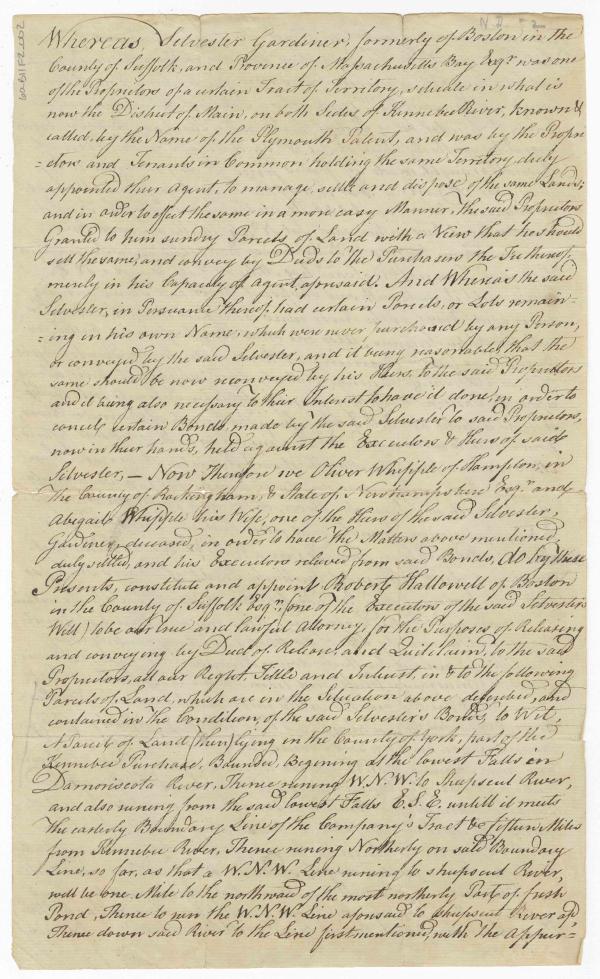 N II - 2
6aB11F2.002
Whereas, Silvester Gardiner, formerly of Boston in the
County of Suffolk, and Province of Massachusetts Bay Esqr. was one
of the Proprietors of a certain Tract of Territory, situate in what is
now the District of Main, on both Sides of Kennebec River, known &
called, by the Name of the Plymouth Patent, and was by the Propri
=etors and Tenants in Common holding the same Territory duly
appointed their Agent, to manage, settle and dispose of the same Lands;
and in order to effect the same in a more easy Manner, the said Proprietors
Granted to him sundry Parcels of Land with a View that he should
sell the same, and convey by Deeds to the Purchasers the Fee thereof,
merely in his Capacity of Agent, aforesaid: And Whereas the said
Silvester, in Persuance thereof, had certain Parcels, or Lots remain=
=ing in his own Name, which were never purchased by any Person,
or conveyed by the said Silvester, and it being reasonable, that the
same should be now reconveyed by his Heirs, to the said Proprietors
and it being also necessary to their Interest to have it done, in order to
cancel certain Bonds, made by the said Silvester to said Proprietors,
now in their hands, held against the Executors & Heirs of said
Silvester, — Now Therefore we Oliver Whipple of Hampton, in
the County of Rockingham, & State of, Newhampshire Esqr. and
Abigail Whipple his Wife, one of the Heirs of the said Silvester,
Gardiner, deceased, in order to have the Matters above mentioned,
duly settled, and his Executors relieved from said Bonds, do by these
Presents, constitute and appoint Robert Hallowell of Boston
in the County of Suffolk Esqr. (one of the Executors of the said Silvester's
Will) to be our true and lawful Attorney, for the Purposes of Releasing
and conveying by Deed of Release and Quitclaim, to the said
Proprietors, all our Right, Title and Interest, in & to the following
Parcels of Land, which are in the Situation above described, and
contained in the Condition, of the said Silvester's Bonds, to Wit,
A Parcel of Land (then) lying in the County of York, part of the
Kennebec Purchase, Bounded, Begining at the lowest Falls in
Damoriscota River, Thence runing W.N.W. to Shepscut River,
and also runing from the said lowest Falls E.S.E. untill it meets
the easterly Boundary Line of the Company's Tract & fifteen Miles
from Kennebec River, Thence runing Northerly on said Boundary
Line, so far, as that a W.N.W. Line runing to shepscut River,
will be one Mile to the northward of the most northerly Part of fresh
Pond, Thence to run the W.N.W. Line aforesaid to Shepscut River
Thence down said River to the Line first mentioned, with the Appur=